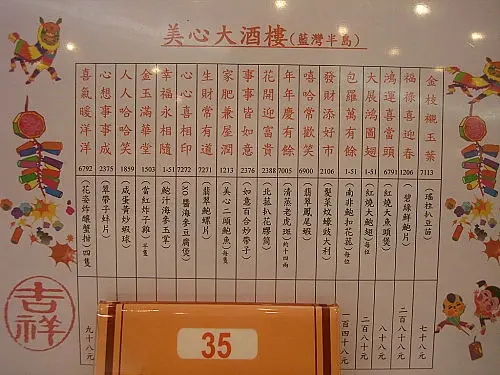 美心大酒樓(藍灣半島)
金枝襯玉葉 7113 (瑤柱扒豆苗) 七十八元
福祿喜迎春 1206 (碧綠鮮鮑片) 二百八十元
鴻運喜當頭 6791 (紅燒大魚頭煲) 八十元
大展鴻圖翅 1-51 (紅燒大鮑翅)每位 二百八十元
包羅萬有餘 1-51 (南非鮑扣花菇)每位 一百四十八元
發財添好市 2106 (髮菜蚊蠔豉大利)
嘻哈常歡笑 6900 (翡翠鳳尾蝦)
年年慶有餘 7005 (清蒸老虎斑)約十四兩
花開迎富貴 2388 (北菰扒花膠筒)
事事皆如意 2376 (如意百合炒帶子)
家肥兼屋潤 1213 (美心二頭鮑魚)每隻
生財常有道 2271 (翡翠鮑螺片)
心心喜相印 7272 (XO醬海參豆腐煲)
幸福永相隨 1-51 (鮑汁海參玉掌)
金玉滿華堂 1503 (當紅炸子雞)半隻
人人哈哈笑 1859 (咸蛋黃炒蝦球)
心想事事成 2375 (翠帶子蚌片)
喜氣暖洋洋 6792 (花姿炸釀蟹拑)四隻 九十八元
吉祥
35